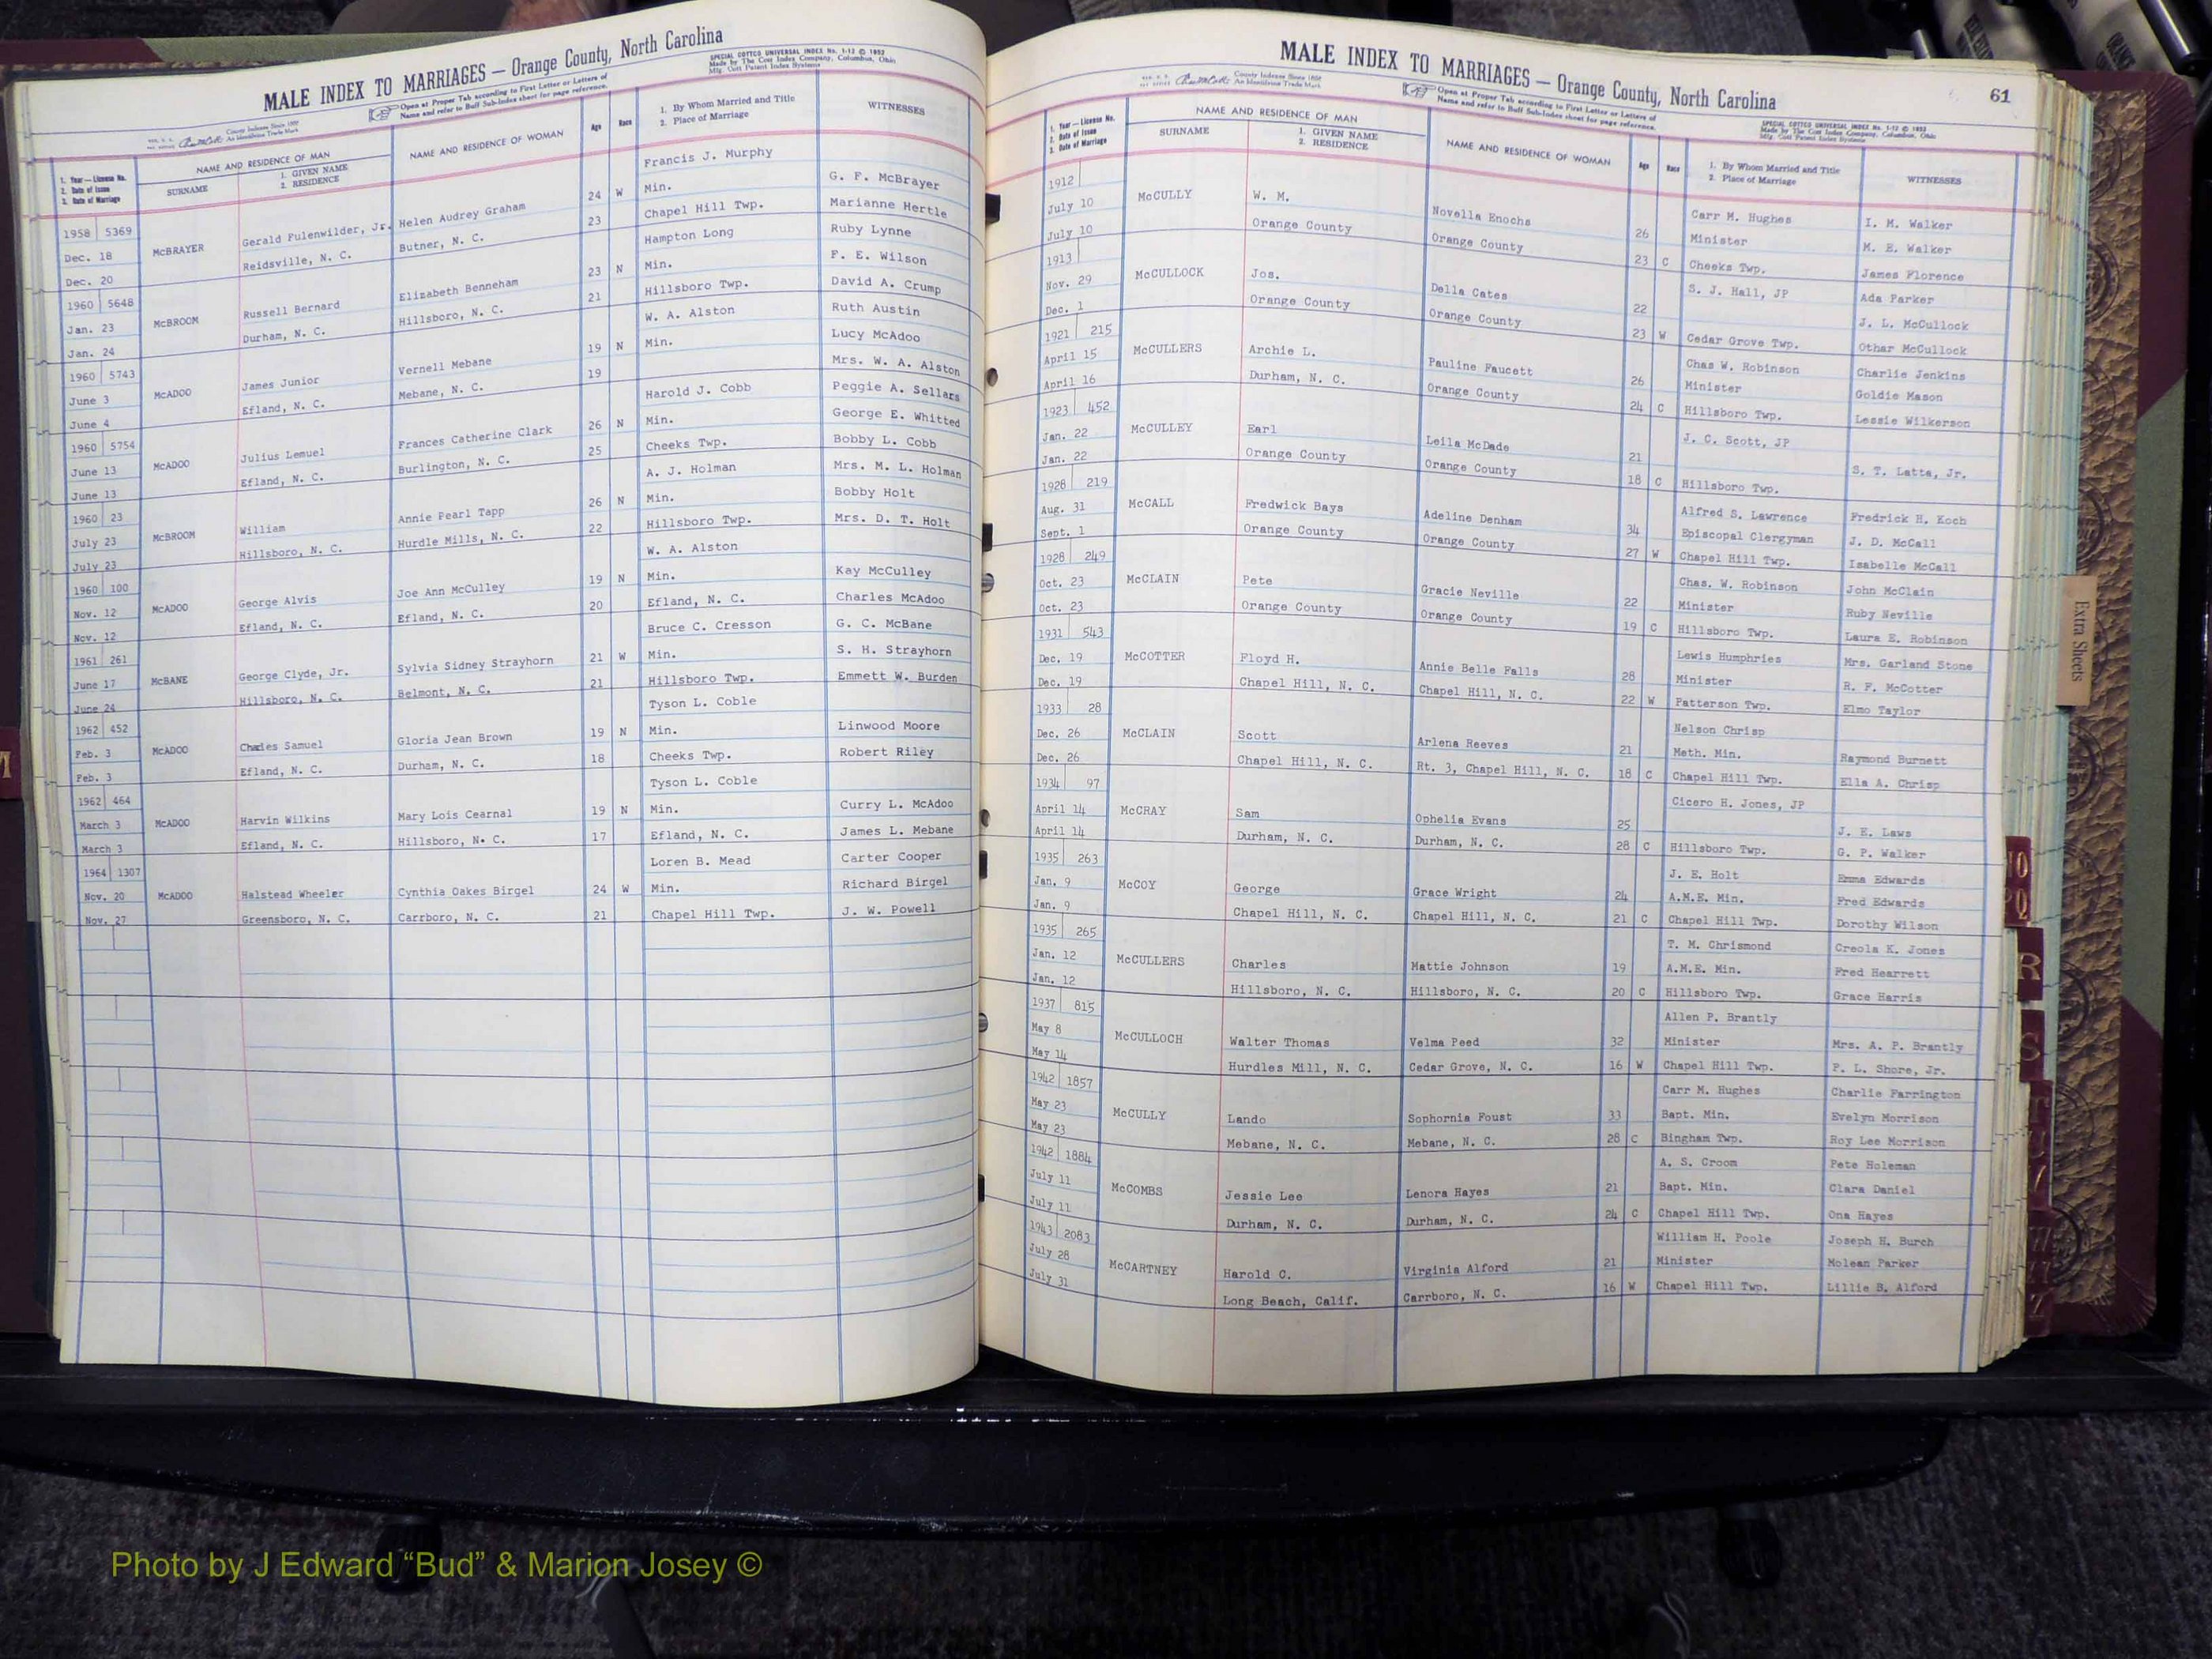 MALE INDEX TO MARRIAGES — Orange County, North Carolina
Open at Proper Tab according to First Letter or Letters of
Name and refer to Buff Sub-Index sheet for page reference.
SPECIAL COTTCO UNIVERSAL INDEX No. 1-12 © 1953
Made by The Cott Index Company, Columbus, Ohio
Mfg. Cott Patent Index Systems
County Indexes Since 1888
An Identifying Trade Mark
1. Year — License No.
2. Date of Issue
3. Date of Marriage
NAME AND RESIDENCE OF MAN
SURNAME
1. GIVEN NAME
2. RESIDENCE
NAME AND RESIDENCE OF WOMAN
Age
Race
1. By Whom Married and Title
2. Place of Marriage
WITNESSES
1958 5369 McBRAYER Gerald Fulenwilder, Jr. Helen Audrey Graham 24 W Francis J. Murphy G. F. McBrayer
Dec. 18 Reidsville, N. C. Butner, N. C. 23 Min. Marianne Hertle
Dec. 20 Chapel Hill Twp. Ruby Lynne
1960 5648 McBROOM Russell Bernard Elizabeth Benneham 23 N Hampton Long F. E. Wilson
Jan. 23 Durham, N. C. Hillsboro, N. C. 21 Min. David A. Crump
Jan. 24 Hillsboro Twp. Ruth Austin
1960 5743 McADOO James Junior Vernell Mebane 19 N W. A. Alston Lucy McAdoo
June 3 Efland, N. C. Mebane, N. C. 19 Min. Mrs. W. A. Alston
June 4 Peggie A. Sellars
1960 5754 McADOO Julius Lemuel Frances Catherine Clark 26 N Harold J. Cobb George E. Whitted
June 13 Efland, N. C. Burlington, N. C. 25 Min. Bobby L. Cobb
June 13 Cheeks Twp.
1960 23 McBROOM William Annie Pearl Tapp 26 N A. J. Holman Mrs. M. L. Holman
July 23 Hillsboro, N. C. Hurdle Mills, N. C. 22 Min. Bobby Holt
July 23 Hillsboro Twp. Mrs. D. T. Holt
1960 100 McADOO George Alvis Joe Ann McCulley 19 N W. A. Alston Kay McCulley
Nov. 12 Efland, N. C. Efland, N. C. 20 Min. Charles McAdoo
Nov. 12 Efland, N. C.
1961 261 McBANE George Clyde, Jr. Sylvia Sidney Strayhorn 21 W Bruce C. Cresson G. C. McBane
June 17 Hillsboro, N. C. Belmont, N. C. 21 Min. S. H. Strayhorn
June 24 Hillsboro Twp. Emmett W. Burden
1962 452 McADOO Charles Samuel Gloria Jean Brown 19 N Tyson L. Coble Linwood Moore
Feb. 3 Efland, N. C. Durham, N. C. 18 Min. Robert Riley
Feb. 3 Cheeks Twp.
1962 464 McADOO Harvin Wilkins Mary Lois Cearnal 19 N Tyson L. Coble Curry L. McAdoo
March 3 Efland, N. C. Hillsboro, N. C. 17 Min. James L. Mebane
March 3 Efland, N. C.
1964 1307 McADOO Halstead Wheeler Cynthia Oakes Birgel 24 W Loren B. Mead Carter Cooper
Nov. 20 Greensboro, N. C. Carrboro, N. C. 21 Min. Richard Birgel
Nov. 27 Chapel Hill Twp. J. W. Powell
MALE INDEX TO MARRIAGES — Orange County, North Carolina
61
County Indexes Since 1888
An Identifying Trade Mark
Open at Proper Tab according to First Letter or Letters of
Name and refer to Buff Sub-Index sheet for page reference.
SPECIAL COTTCO UNIVERSAL INDEX No. 1-12 © 1953
Made by The Cott Index Company, Columbus, Ohio
Mfg. Cott Patent Index Systems
1. Year — License No.
2. Date of Issue
3. Date of Marriage
NAME AND RESIDENCE OF MAN
SURNAME
1. GIVEN NAME
2. RESIDENCE
NAME AND RESIDENCE OF WOMAN
Age
Race
1. By Whom Married and Title
2. Place of Marriage
WITNESSES
1912 McCULLY W. M. Novella Enochs 26 Carr M. Hughes I. M. Walker
July 10 Orange County Orange County 23 C Minister M. E. Walker
July 10 Cheeks Twp. James Florence
1913 McCULLOCK Jos. Della Cates 22 S. J. Hall, JP Ada Parker
Nov. 29 Orange County Orange County 23 W J. L. McCullock
Dec. 1 Cedar Grove Twp. Othar McCullock
1921 215 McCULLERS Archie L. Pauline Faucett 26 Chas W. Robinson Charlie Jenkins
April 15 Durham, N. C. Orange County 24 C Minister Goldie Mason
April 16 Hillsboro Twp. Lessie Wilkerson
1923 452 McCULLEY Earl Leila McDade 21 J. C. Scott, JP
Jan. 22 Orange County Orange County 18 C S. T. Latta, Jr.
Jan. 22 Hillsboro Twp.
1928 219 McCALL Fredwick Bays Adeline Denham 34 Alfred S. Lawrence Fredrick H. Koch
Aug. 31 Orange County Orange County 27 W Episcopal Clergyman J. D. McCall
Sept. 1 Chapel Hill Twp. Isabelle McCall
1928 249 McCLAIN Pete Gracie Neville 22 Chas. W. Robinson John McClain
Oct. 23 Orange County Orange County 19 C Minister Ruby Neville
Oct. 23 Hillsboro Twp. Laura E. Robinson
1931 543 McCOTTER Floyd H. Annie Belle Falls 28 Lewis Humphries Mrs. Garland Stone
Dec. 19 Chapel Hill, N. C. Chapel Hill, N. C. 22 W Minister R. F. McCotter
Dec. 19 Patterson Twp. Elmo Taylor
1933 28 McCLAIN Scott Arlena Reeves 21 Nelson Chrisp
Dec. 26 Chapel Hill, N. C. Rt. 3, Chapel Hill, N. C. 18 C Meth. Min. Raymond Burnett
Dec. 26 Chapel Hill Twp. Ella A. Chrisp
1934 97 McCRAY Sam Ophelia Evans 25 Cicero H. Jones, JP
April 14 Durham, N. C. Durham, N. C. 28 C J. E. Laws
April 14 Hillsboro Twp. G. P. Walker
1935 263 McCOY George Grace Wright 24 J. E. Holt Emma Edwards
Jan. 9 Chapel Hill, N. C. Chapel Hill, N. C. 21 C A.M.E. Min. Fred Edwards
Jan. 9 Chapel Hill Twp. Dorothy Wilson
1935 265 McCULLERS Charles Mattie Johnson 19 T. M. Chrismond Creola K. Jones
Jan. 12 Hillsboro, N. C. Hillsboro, N. C. 20 C A.M.E. Min. Fred Hearrett
Jan. 12 Hillsboro Twp. Grace Harris
1937 815 McCULLOCH Walter Thomas Velma Peed 32 Allen P. Brantly
May 8 Hurdles Mill, N. C. Cedar Grove, N. C. 16 W Minister Mrs. A. P. Brantly
May 14 Chapel Hill Twp. P. L. Shore, Jr.
1942 1857 McCULLY Lando Sophornia Foust 33 Carr M. Hughes Charlie Farrington
May 23 Mebane, N. C. Mebane, N. C. 28 C Bapt. Min. Evelyn Morrison
May 23 Bingham Twp. Roy Lee Morrison
1942 1884 McCOMBS Jessie Lee Lenora Hayes 21 A. S. Croom Pete Holeman
July 11 Durham, N. C. Durham, N. C. 24 C Bapt. Min. Clara Daniel
July 11 Chapel Hill Twp. Ona Hayes
1943 2083 McCARTNEY Harold C. Virginia Alford 21 William H. Poole Joseph H. Burch
July 28 Long Beach, Calif. Carrboro, N. C. 16 W Minister Molean Parker
July 31 Chapel Hill Twp. Lillie B. Alford
Extra Sheets
R
S
Photo by J Edward “Bud” & Marion Josey ©